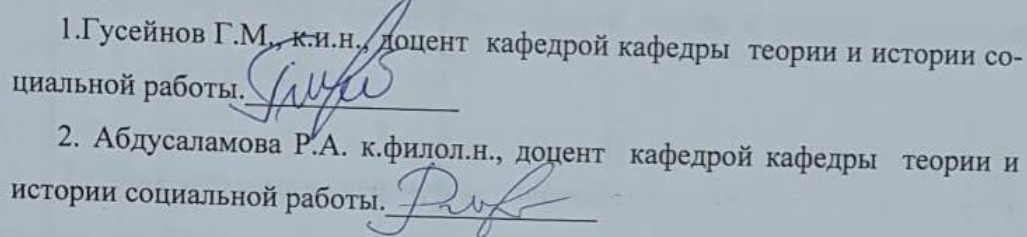 1.Гусейнов Г.М., к.и.н., доцент кафедрой кафедры теории и истории со-
циальной работы.
2. Абдусаламова Р.А. к.филол.н., доцент кафедрой кафедры теории и
истории социальной работы.